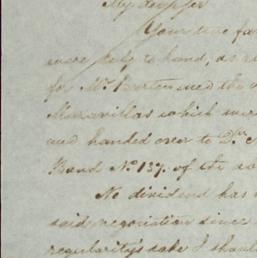 My dear Sir
Your two fa
were duly to hand, as a
for Mr. Barton and the
Maravillas which were
and handed over to Dr.
Bond No. 137. of the
No dividend has
said negociation since
regularity's sake I shou